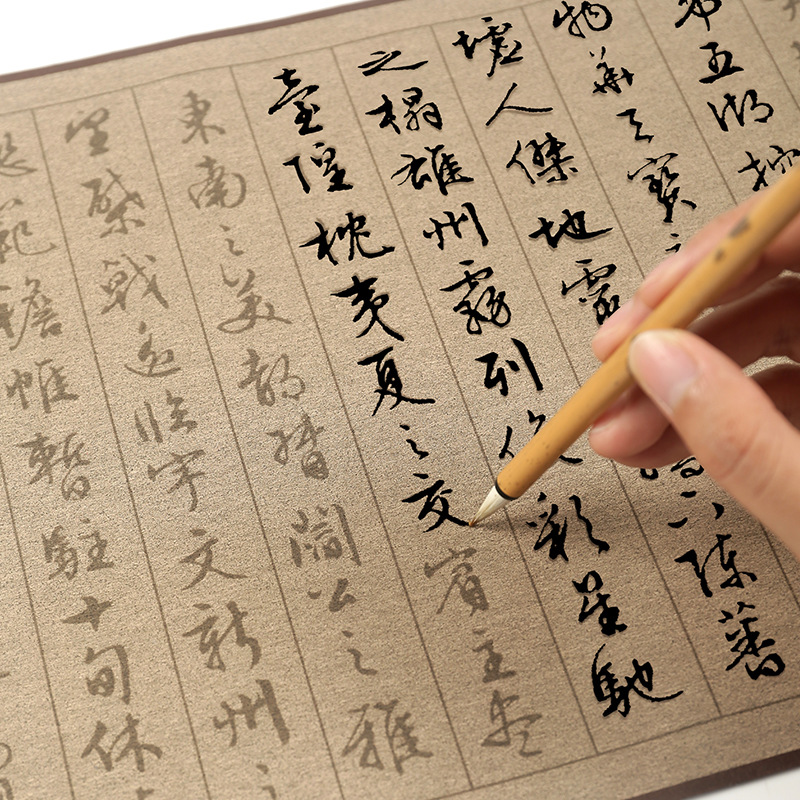 帶五湖控
物華天寶
墟人傑地靈孺下陳蕃
之榻雄州霧列俊彩星馳
臺隍枕夷夏之交賓主盡
東南之美都督閻公之雅
望棨戟遙臨宇文新州之
懿範襜帷暫駐十旬休